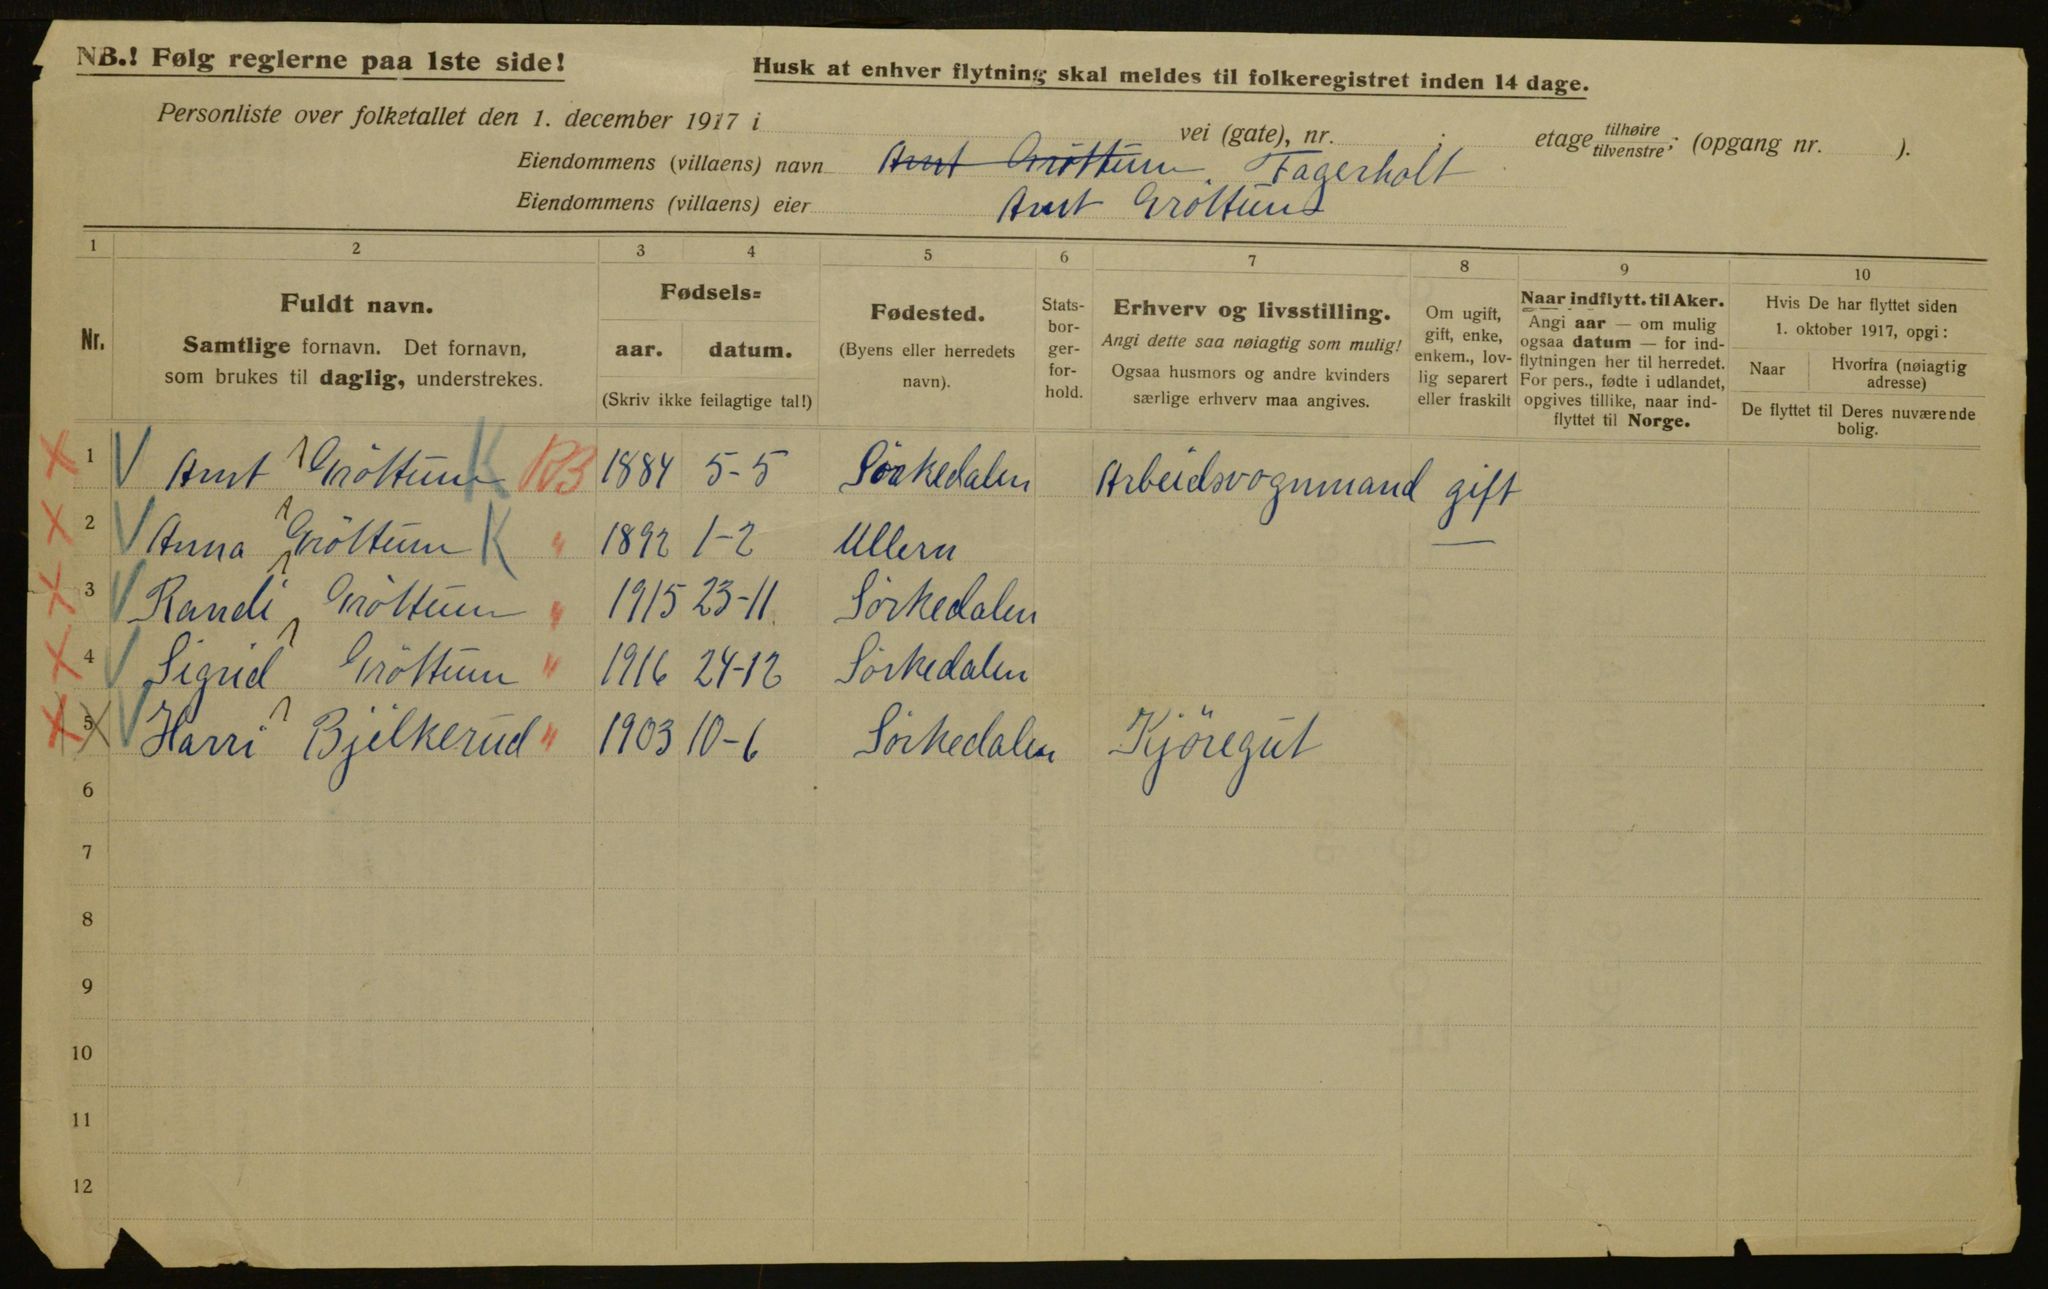 NB.! Følg reglerne paa 1ste side!
Husk at enhver flytning skal meldes til folkeregistret inden 14 dage.
Personliste over folketallet den 1. december 1917 i vei (gate), nr. . etage tilhøire tilvenstre; (opgang nr. ).
Eiendommens (villaens) navn Arnt Gröttum. Fagerholt
Eiendommens (villaens) eier Arnt Gröttum
1 2 3 4 5 6 7 8 9 10
Nr.
Fuldt navn.
Samtlige fornavn. Det fornavn,
som brukes til daglig, understrekes.
Fødsels=
aar. datum.
(Skriv ikke feilagtige tal!)
Fødested.
(Byens eller herredets
navn).
Stats-
bor-
ger-
for-
hold.
Erhverv og livsstilling.
Angi dette saa nøiagtig som mulig!
Ogsaa husmors og andre kvinders
særlige erhverv maa angives.
Om ugift,
gift, enke,
enkem., lov-
lig separert
eller fraskilt
Naar indflytt. til Aker.
Angi aar — om mulig
ogsaa datum — for ind-
flytningen her til herredet.
For pers., fødte i udlandet,
opgives tillike, naar ind-
flyttet til Norge.
Hvis De har flyttet siden
1. oktober 1917, opgi:
Naar
Hvorfra (nøiagtig
adresse)
De flyttet til Deres nuværende
bolig.
X 1 V Arnt Gröttum K RB 1884 5-5 Sörkedalen Arbeidsvognmand gift
X 2 V Anna Gröttum K " 1892 1-2 Ullern —
X 3 V Randi Gröttum " 1915 23-11 Sörkedalen
X 4 V Sigrid Gröttum " 1916 24-12 Sörkedalen
X 5 V Harri Bjelkerud " 1903 10-6 Sörkedalen Kjöregut
6
7
8
9
10
11
12